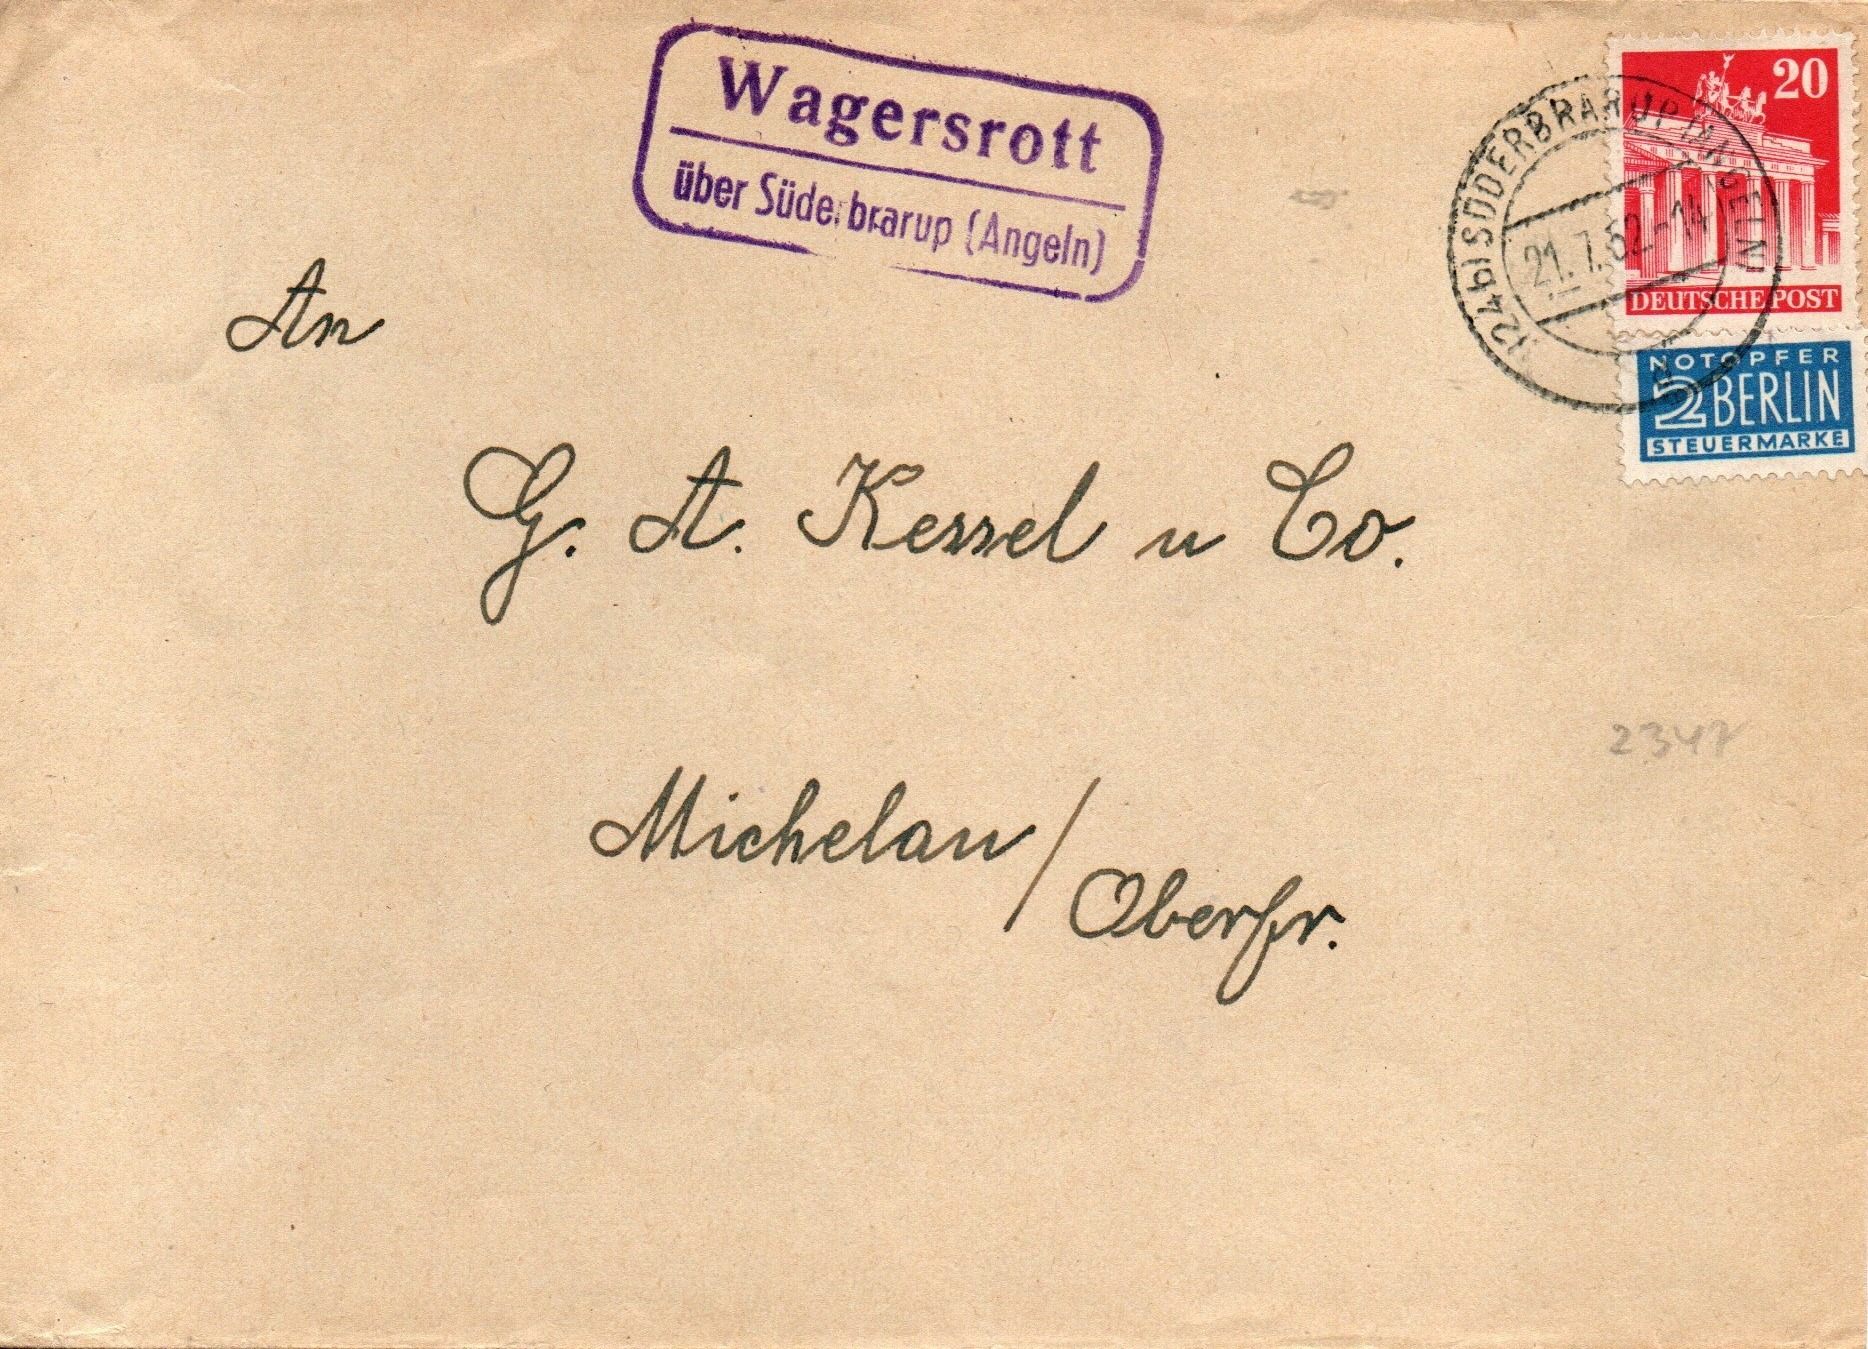 Wagersrott
über Süderbrarup (Angeln)
20
DEUTSCHE POST
(24b) SÜDERBRARUP (ANGELN)
21.7.52.-14
NOTOPFER
2 BERLIN
STEUERMARKE
An
G. A. Kessel u Co.
2347
Michelau/
Oberfr.